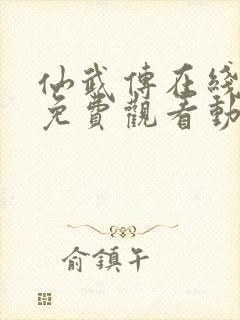 仙武傳在綫
免費觀看動
俞鎮午